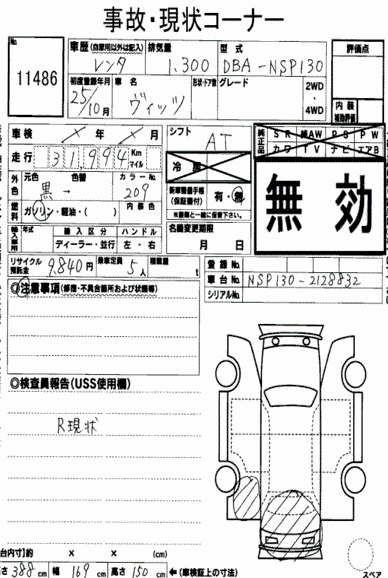 事故・現状コーナー
No.
11486
車歴(自家用以外は記入) 排気量 型式
レンタ 1.300 DBA-NSP130
評価点
初度登録年月 車名 形状・ドア数 グレード
25/10月 ヴィッツ
2WD
・
4WD
内装
補助評価
車検 × 年 × 月
シフト AT
純正品 SR 純AW PS PW
カワ TV ナビ エアB
走行 31,994 Km マイル
冷房
外色 元色 色替 カラーNo.
黒→ 209
新車整備手帳 有・無
(保証書付)
※車両と一緒に保管下さい。
無効
燃料 ガソリン・軽油・( ) 内装色
名義変更期限
月 日
輸入車用 年式 輸入区分 ハンドル
ディーラー・並行 左・右
リサイクル預託金 9.840円 乗車定員 5人 積載量 t
登録No.
車台No. NSP130-2128832
シリアルNo.
◎注意事項(修復・不具合箇所および状態等)
◎検査員報告(USS使用欄)
R現状
台内寸)約 × × (cm)
さ 388cm 幅 169cm 高さ 150cm ←(車検証上の寸法)
スペア